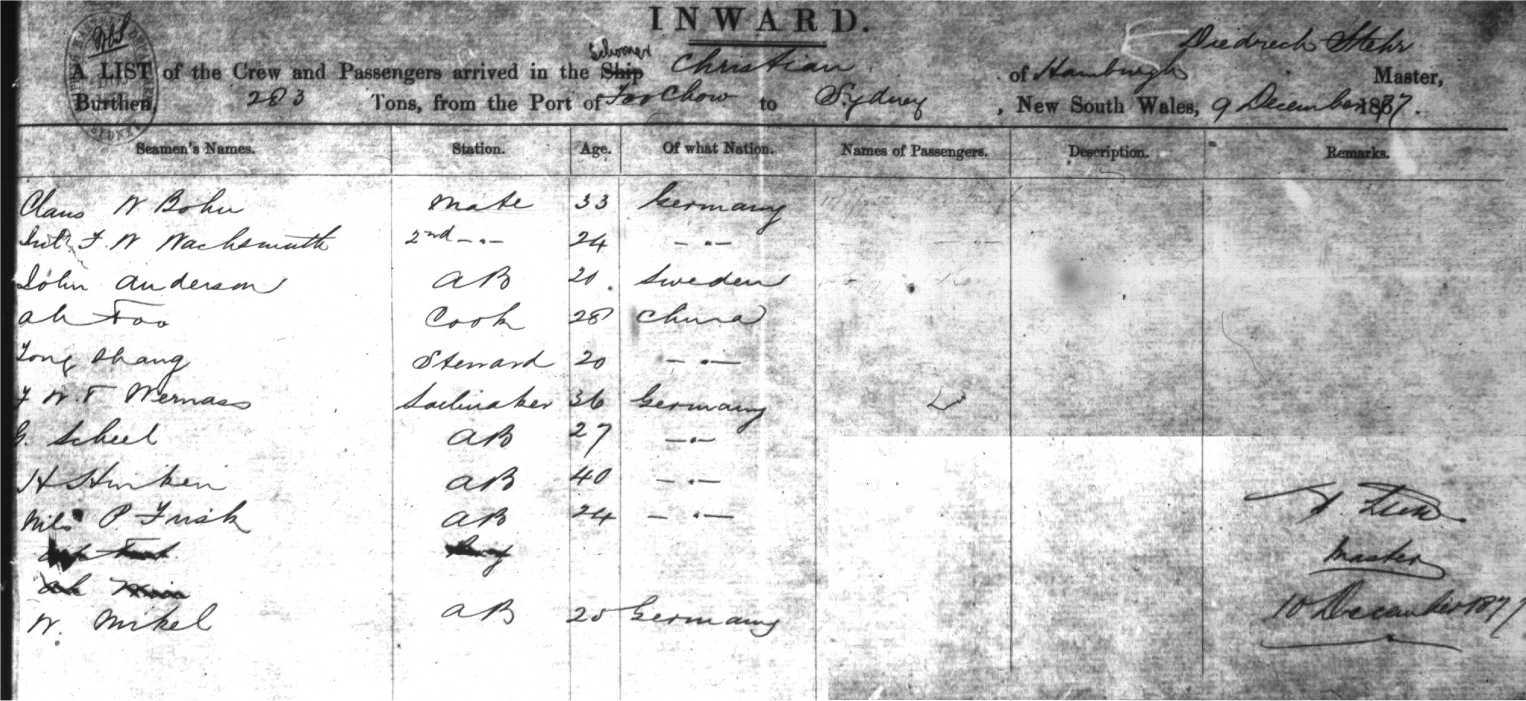 INWARD.
Diedrech Stehr
Schooner
A LIST of the Crew and Passengers arrived in the Ship Christian of Hamburgh Master,
Burthen, 283 Tons, from the Port of Foo Chow to Sydney, New South Wales, 9 December 1877.
Seamen's Names. Station. Age. Of what Nation. Names of Passengers. Description. Remarks.
Claus W Bohn Mate 33 Germany
F. W Wachsmuth 2nd -"- 24 -"-
John Anderson AB 20. Sweden
Ah Foo Cook 28 China
Tong Shang Steward 20 -"-
F W F Wernass Sailmaker 36 Germany
G. Scheel AB 27 -"-
H Hinken AB 40 -"-
Nils P Frisk AB 24 -"-
W. Mikel AB 25 Germany
Master
10 December 1877